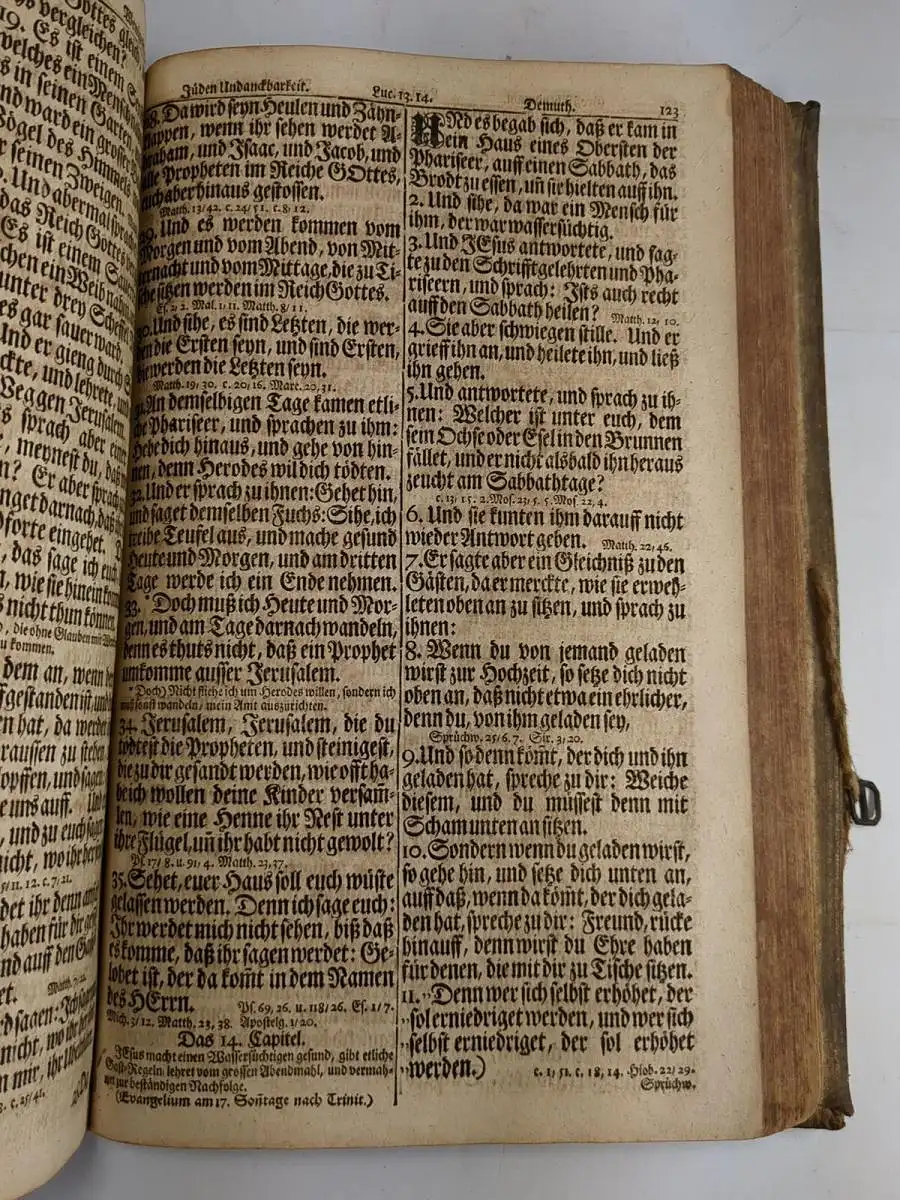 Gottes gleich
vergleichen?
19. Es ist einem
welches ein Mensch
in seinen Garten
nd ward ein grosser
Vögel des Himmels
r seinen Zweigen.
Und abermal sprach
das Reich Gottes
Es ist einem Sauer
chen ein Weib nahm
unter drey Scheffel
es gar sauer ward.
Und er gieng durch
ckte, und lehrete, und
Weg gen Jerusalem
s sprach aber einer
, meynest du, daß
n? Er aber sprach
nget darnach, daß ihr
forte eingehet.
, das sage ich euch
, wie sie hinein kom
s nicht thun können.
, die ohne Glauben mit
u kommen.
dem an, wenn
fgestanden ist, und
en hat, da werdet
raussen zu stehen
lopffen, und sagen
e uns auff. Und
, und zu euch sagen
nicht, wo ihr her
11. 12. c. 7/21.
det ihr denn anfa
haben für dir ge
nd auff den Gas
et. Matth. 7/22
d sagen: Ich sage
nicht, wo ihr her
n mir, ihr Ubel
3. c. 25/41.
Jüden Undanckbarkeit. Luc. 13. 14. Demuth. 123
28. Da wird seyn Heulen und Zähn-
klappen, wenn ihr sehen werdet A-
braham, und Isaac, und Jacob, und
alle Propheten im Reiche GOttes,
euch aber hinaus gestossen.
Matth. 13/42. c. 24/51. c. 8/12.
29. Und es werden kommen vom
Morgen und vom Abend, von Mit-
ternacht und vom Mittage, die zu Ti-
sche sitzen werden im Reich Gottes.
Es. 2/2. Mal. 1/11. Matth. 8/11.
30. Und sihe, es sind Letzten, die wer-
den die Ersten seyn, und sind Ersten,
die werden die Letzten seyn.
Matth. 19/30. c. 20/16. Marc. 20, 31.
31. An demselbigen Tage kamen etli-
che Phariseer, und sprachen zu ihm:
Hebe dich hinaus, und gehe von hin-
nen, denn Herodes wil dich tödten.
32. Und er sprach zu ihnen: Gehet hin,
und saget demselben Fuchs: Sihe, ich
treibe Teufel aus, und mache gesund
Heute und Morgen, und am dritten
Tage werde ich ein Ende nehmen.
33. * Doch muß ich Heute und Mor-
gen, und am Tage darnach wandeln,
denn es thuts nicht, daß ein Prophet
umkomme ausser Jerusalem.
* Doch) Nicht fliehe ich um Herodes willen, sondern ich
muß sonst wandeln, mein Amt auszurichten.
34. Jerusalem, Jerusalem, die du
tödtest die Propheten, und steinigest,
die zu dir gesandt werden, wie offt ha-
be ich wollen deine Kinder versam̄-
len, wie eine Henne ihr Nest unter
ihre Flügel, uñ ihr habt nicht gewolt?
Ps. 17/8. u. 91/4. Matth. 23, 37.
35. Sehet, euer Haus soll euch wüste
gelassen werden. Denn ich sage euch:
Ihr werdet mich nicht sehen, biß daß
es komme, daß ihr sagen werdet: Ge-
lobet ist, der da kom̄t in dem Namen
des HErrn. Ps. 69, 26. u. 118/26. Es. 1/7.
Mich. 3/12. Matth. 23, 38. Apostelg. 1/20.
Das 14. Capitel.
JEsus macht einen Wassersüchtigen gesund, gibt etliche
Gast-Regeln, lehret vom grossen Abendmahl, und vermah-
net zur beständigen Nachfolge.
(Evangelium am 17. Soñtage nach Trinit.)
UNd es begab sich, daß er kam in
ein Haus eines Obersten der
Phariseer, auff einen Sabbath, das
Brodt zu essen, uñ sie hielten auff ihn.
2. Und sihe, da war ein Mensch für
ihm, der war wassersüchtig.
3. Und JEsus antwortete, und sag-
te zu den Schrifftgelehrten und Pha-
riseern, und sprach: Ists auch recht
auff den Sabbath heilen? Matth. 12, 10.
4. Sie aber schwiegen stille. Und er
grieff ihn an, und heilete ihn, und ließ
ihn gehen.
5. Und antwortete, und sprach zu ih-
nen: Welcher ist unter euch, dem
sein Ochse oder Esel in den Brunnen
fället, und er nicht alsbald ihn heraus
zeucht am Sabbathtage?
c. 13, 15. 2. Mos. 23, 5. 5. Mos. 22, 4.
6. Und sie kunten ihm darauff nicht
wieder Antwort geben. Matth. 22, 46.
7. Er sagte aber ein Gleichniß zu den
Gästen, da er merckte, wie sie erweh-
leten oben an zu sitzen, und sprach zu
ihnen:
8. Wenn du von jemand geladen
wirst zur Hochzeit, so setze dich nicht
oben an, daß nicht etwa ein ehrlicher,
denn du, von ihm geladen sey,
Sprüchw. 25/6. 7. Sir. 3/20.
9. Und so denn kom̄t, der dich und ihn
geladen hat, spreche zu dir: Weiche
diesem, und du müssest denn mit
Scham unten an sitzen.
10. Sondern wenn du geladen wirst,
so gehe hin, und setze dich unten an,
auff daß, wenn da kom̄t, der dich gela-
den hat, spreche zu dir: Freund, rücke
hinauff, denn wirst du Ehre haben
für denen, die mit dir zu Tische sitzen.
11. „Denn wer sich selbst erhöhet, der
„sol erniedriget werden, und wer sich
„selbst erniedriget, der sol erhöhet
„werden.) c. 1, 51. c. 18, 14. Hiob. 22/29.
Sprüchw.